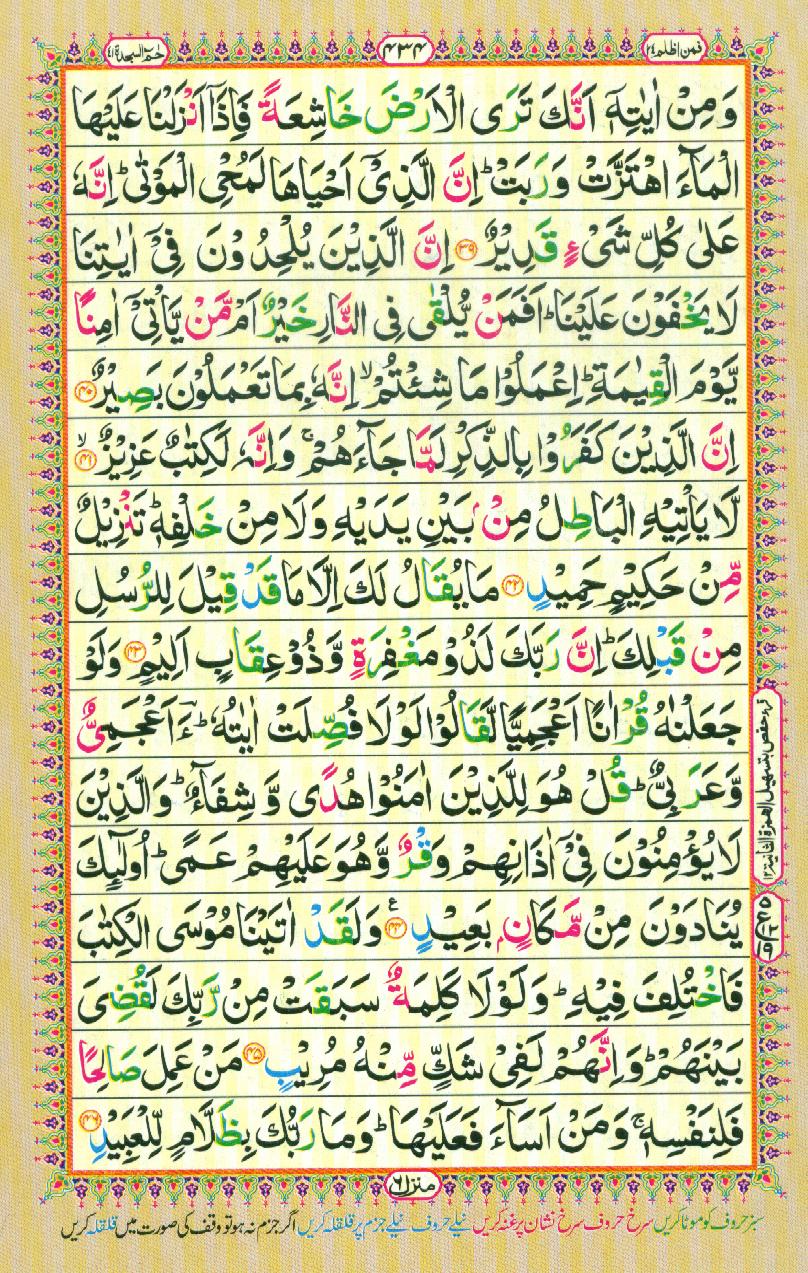 فمن اظلم ٢٤
۴۳۴
حٰمٓ السجدة ٤١
وَمِنْ اٰيٰتِهٖٓ اَنَّكَ تَرَى الْاَرْضَ خَاشِعَةً فَاِذَآ اَنْزَلْنَا عَلَيْهَا
الْمَآءَ اهْتَزَّتْ وَرَبَتْ ؕ اِنَّ الَّذِيْٓ اَحْيَاهَا لَمُحْيِ الْمَوْتٰى ؕ اِنَّهٗ
عَلٰى كُلِّ شَيْءٍ قَدِيْرٌ ﴿۳۹﴾ اِنَّ الَّذِيْنَ يُلْحِدُوْنَ فِيْٓ اٰيٰتِنَا
لَا يَخْفَوْنَ عَلَيْنَا ؕ اَفَمَنْ يُّلْقٰى فِي النَّارِ خَيْرٌ اَمْ مَّنْ يَّاْتِيْٓ اٰمِنًا
يَّوْمَ الْقِيٰمَةِ ؕ اِعْمَلُوْا مَا شِئْتُمْ ۙ اِنَّهٗ بِمَا تَعْمَلُوْنَ بَصِيْرٌ ﴿۴۰﴾
اِنَّ الَّذِيْنَ كَفَرُوْا بِالذِّكْرِ لَمَّا جَآءَهُمْ ۚ وَاِنَّهٗ لَكِتٰبٌ عَزِيْزٌ ۙ﴿۴۱﴾
لَّا يَاْتِيْهِ الْبَاطِلُ مِنْۢ بَيْنِ يَدَيْهِ وَلَا مِنْ خَلْفِهٖ ؕ تَنْزِيْلٌ
مِّنْ حَكِيْمٍ حَمِيْدٍ ﴿۴۲﴾ مَا يُقَالُ لَكَ اِلَّا مَا قَدْ قِيْلَ لِلرُّسُلِ
مِنْ قَبْلِكَ ؕ اِنَّ رَبَّكَ لَذُوْ مَغْفِرَةٍ وَّذُوْ عِقَابٍ اَلِيْمٍ ﴿۴۳﴾ وَلَوْ
جَعَلْنٰهُ قُرْاٰنًا اَعْجَمِيًّا لَّقَالُوْا لَوْلَا فُصِّلَتْ اٰيٰتُهٗ ؕ ءَاَعْجَمِيٌّ
وَّعَرَبِيٌّ ؕ قُلْ هُوَ لِلَّذِيْنَ اٰمَنُوْا هُدًى وَّشِفَآءٌ ؕ وَالَّذِيْنَ
لَا يُؤْمِنُوْنَ فِيْٓ اٰذَانِهِمْ وَقْرٌ وَّهُوَ عَلَيْهِمْ عَمًى ؕ اُولٰٓئِكَ
يُنَادَوْنَ مِنْ مَّكَانٍۭ بَعِيْدٍ ﴿۴۴﴾ وَلَقَدْ اٰتَيْنَا مُوْسَى الْكِتٰبَ
فَاخْتُلِفَ فِيْهِ ؕ وَلَوْلَا كَلِمَةٌ سَبَقَتْ مِنْ رَّبِّكَ لَقُضِيَ
بَيْنَهُمْ ؕ وَاِنَّهُمْ لَفِيْ شَكٍّ مِّنْهُ مُرِيْبٍ ﴿۴۵﴾ مَنْ عَمِلَ صَالِحًا
فَلِنَفْسِهٖ ۚ وَمَنْ اَسَآءَ فَعَلَيْهَا ؕ وَمَا رَبُّكَ بِظَلَّامٍ لِّلْعَبِيْدِ ﴿۴۶﴾
منزل ٦
سبز حروف کو موٹا کریں سرخ حروف سرخ نشان پر غنہ کریں نیلے حروف نیلے جزم پر قلقلہ کریں اگر جزم نہ ہو تو وقف کی صورت میں قلقلہ کریں